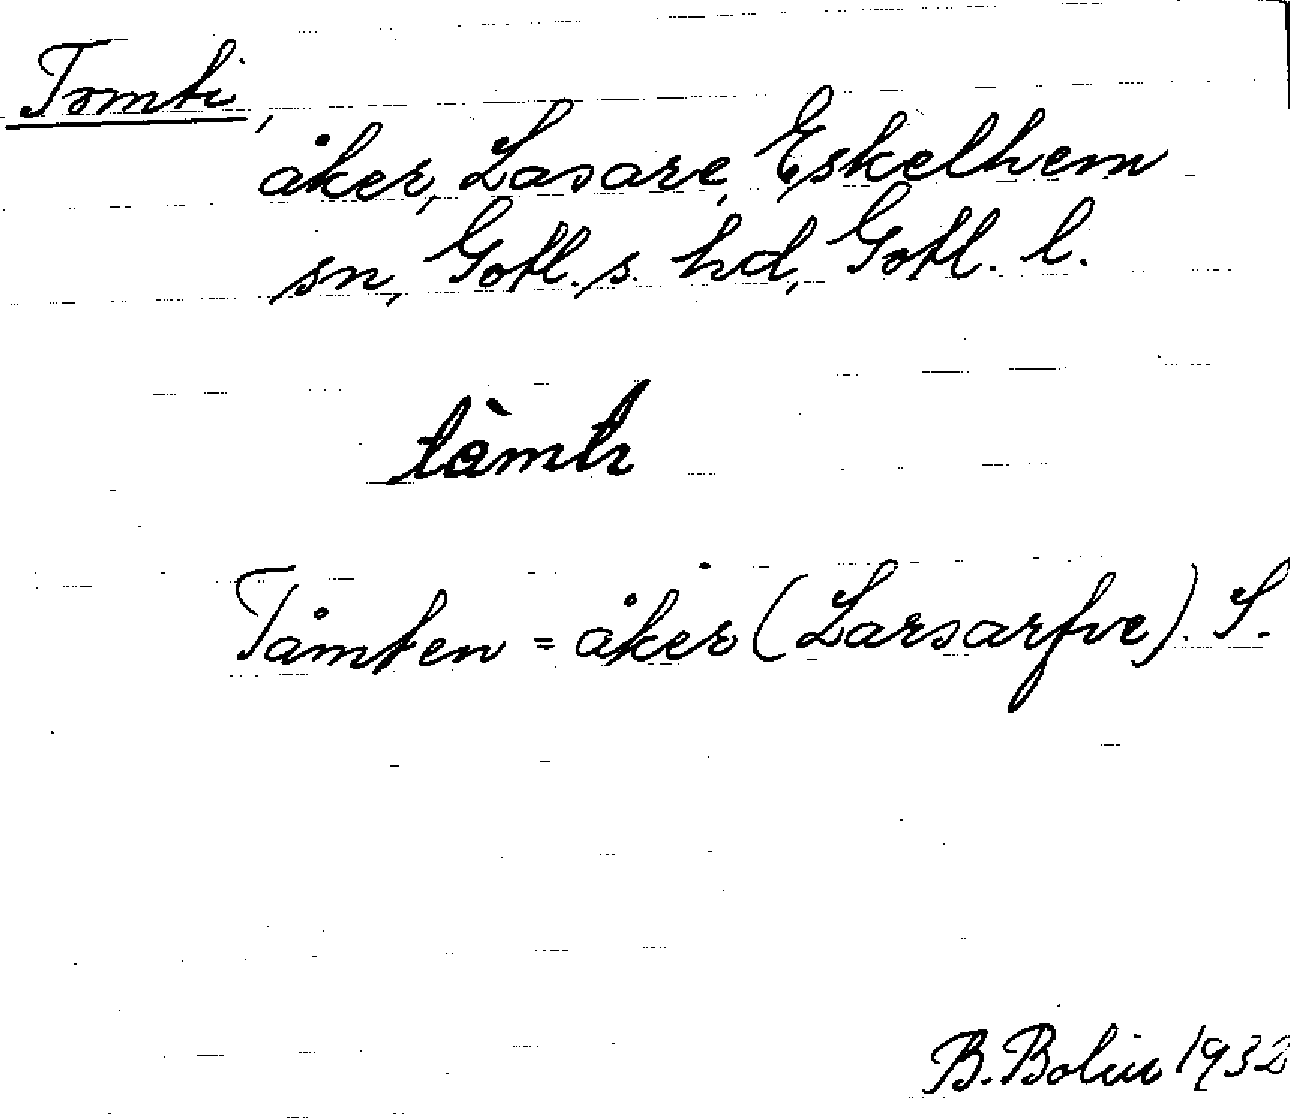 Tomti,
åker, Lasare, Eskelhem
sn, Gotl. s. hd, Gotl. l.
tàmtı
Tåmten = åker (Larsarfve). S.
B. Bolin 1932